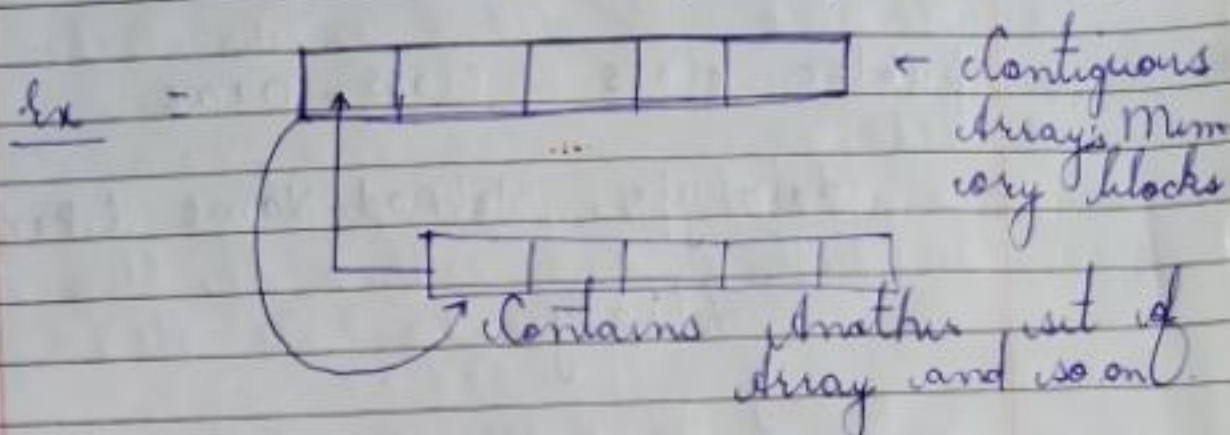 Ex = ← Contiguous
Array's Mem
ory blocks
Contains Another set of
Array and so on.